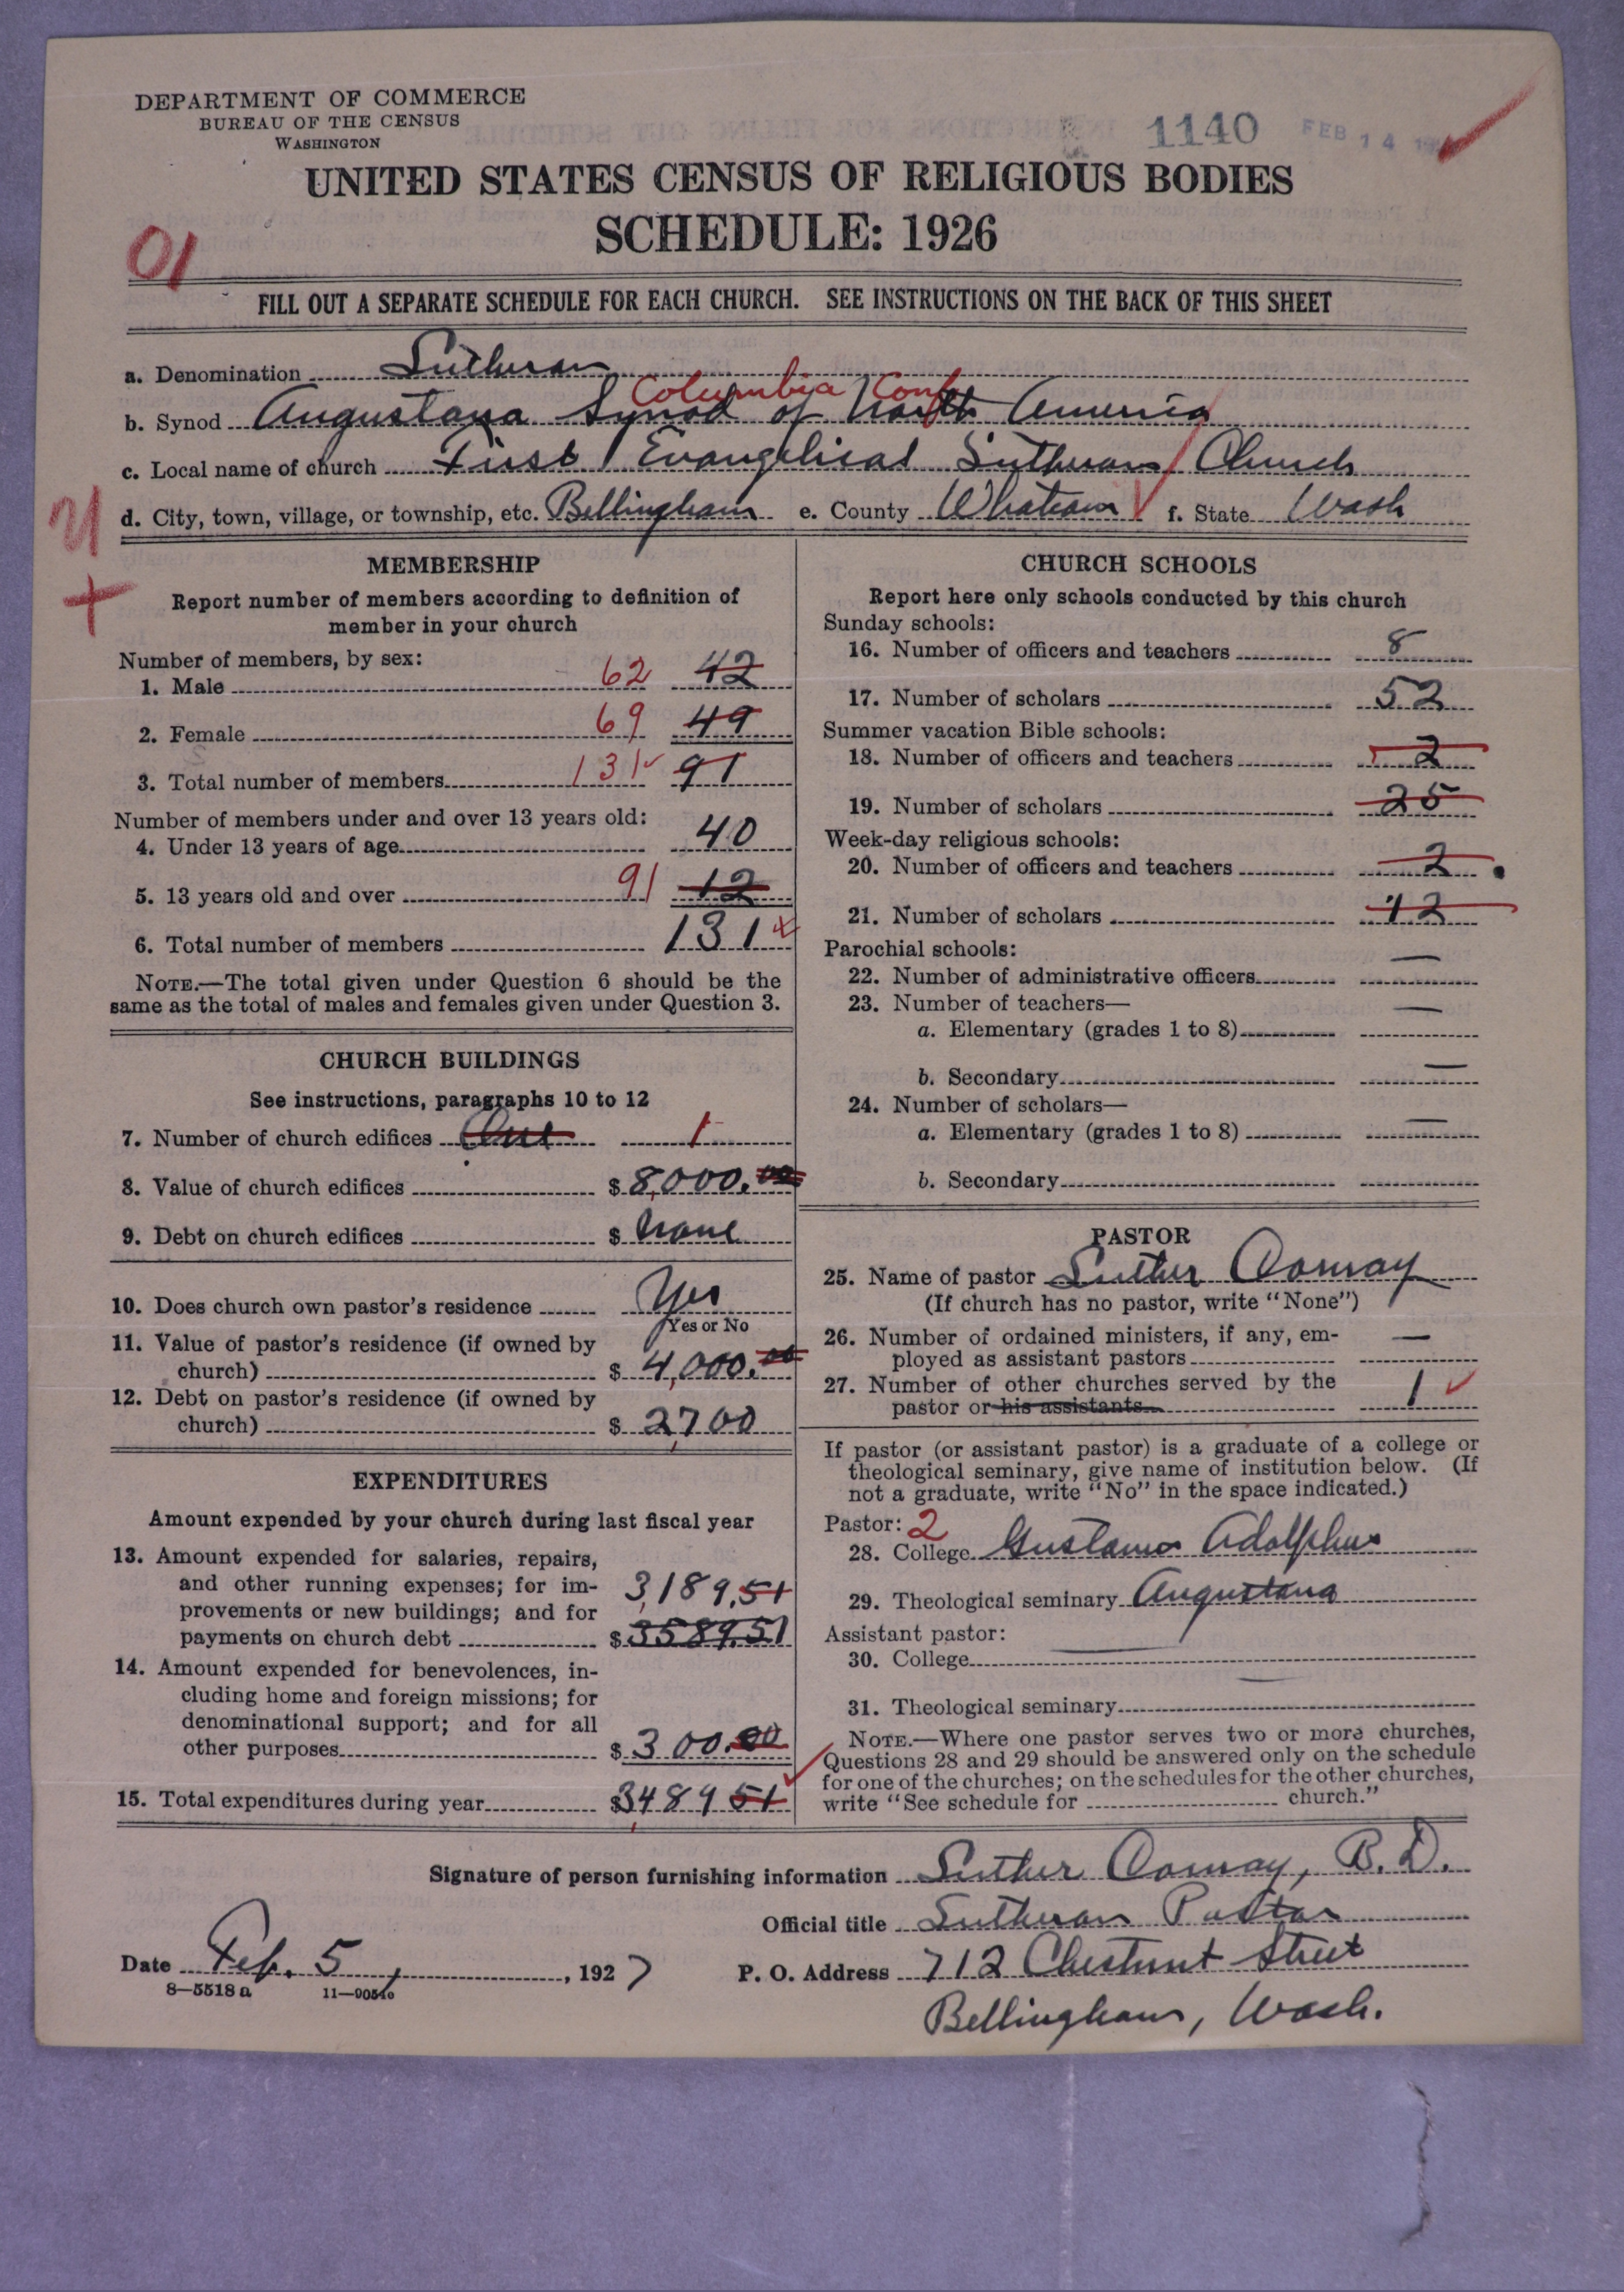 DEPARTMENT OF COMMERCE
BUREAU OF THE CENSUS
WASHINGTON
1140 FEB 14
UNITED STATES CENSUS OF RELIGIOUS BODIES
SCHEDULE: 1926
01
FILL OUT A SEPARATE SCHEDULE FOR EACH CHURCH. SEE INSTRUCTIONS ON THE BACK OF THIS SHEET
a. Denomination Lutheran
Columbia Conf
b. Synod Augustana Synod of North America
c. Local name of church First Evangelical Lutheran Church
d. City, town, village, or township, etc. Bellingham e. County Whatcom f. State Wash
MEMBERSHIP
Report number of members according to definition of
member in your church
Number of members, by sex:
1. Male 62 42
2. Female 69 49
3. Total number of members 131 91
Number of members under and over 13 years old:
4. Under 13 years of age 40
5. 13 years old and over 91 12
6. Total number of members 131
NOTE.—The total given under Question 6 should be the
same as the total of males and females given under Question 3.
CHURCH BUILDINGS
See instructions, paragraphs 10 to 12
7. Number of church edifices One 1
8. Value of church edifices $ 8,000.00
9. Debt on church edifices $ None
10. Does church own pastor's residence Yes
Yes or No
11. Value of pastor's residence (if owned by
church) $ 4,000.00
12. Debt on pastor's residence (if owned by
church) $ 2,700
EXPENDITURES
Amount expended by your church during last fiscal year
13. Amount expended for salaries, repairs,
and other running expenses; for im-
provements or new buildings; and for 3,189.51
payments on church debt $ 3589.51
14. Amount expended for benevolences, in-
cluding home and foreign missions; for
denominational support; and for all
other purposes $ 300.00
15. Total expenditures during year $ 3,489 51
CHURCH SCHOOLS
Report here only schools conducted by this church
Sunday schools:
16. Number of officers and teachers 8
17. Number of scholars 52
Summer vacation Bible schools:
18. Number of officers and teachers 2
19. Number of scholars 25
Week-day religious schools:
20. Number of officers and teachers 2
21. Number of scholars 12
Parochial schools:
22. Number of administrative officers —
23. Number of teachers—
a. Elementary (grades 1 to 8) —
b. Secondary —
24. Number of scholars—
a. Elementary (grades 1 to 8) —
b. Secondary
PASTOR
25. Name of pastor Luther
(If church has no pastor, write "None")
26. Number of ordained ministers, if any, em-
ployed as assistant pastors —
27. Number of other churches served by the
pastor or his assistants 1
If pastor (or assistant pastor) is a graduate of a college or
theological seminary, give name of institution below. (If
not a graduate, write "No" in the space indicated.)
Pastor: 2
28. College Gustavus Adolphus
29. Theological seminary Augustana
Assistant pastor:
30. College —
31. Theological seminary —
NOTE.—Where one pastor serves two or more churches,
Questions 28 and 29 should be answered only on the schedule
for one of the churches; on the schedules for the other churches,
write "See schedule for church."
Signature of person furnishing information Luther B.D.
Official title Lutheran Pastor
Date Feb. 5, 1927
P. O. Address 712 Chestnut Street
8—5518 a
Bellingham, Wash.